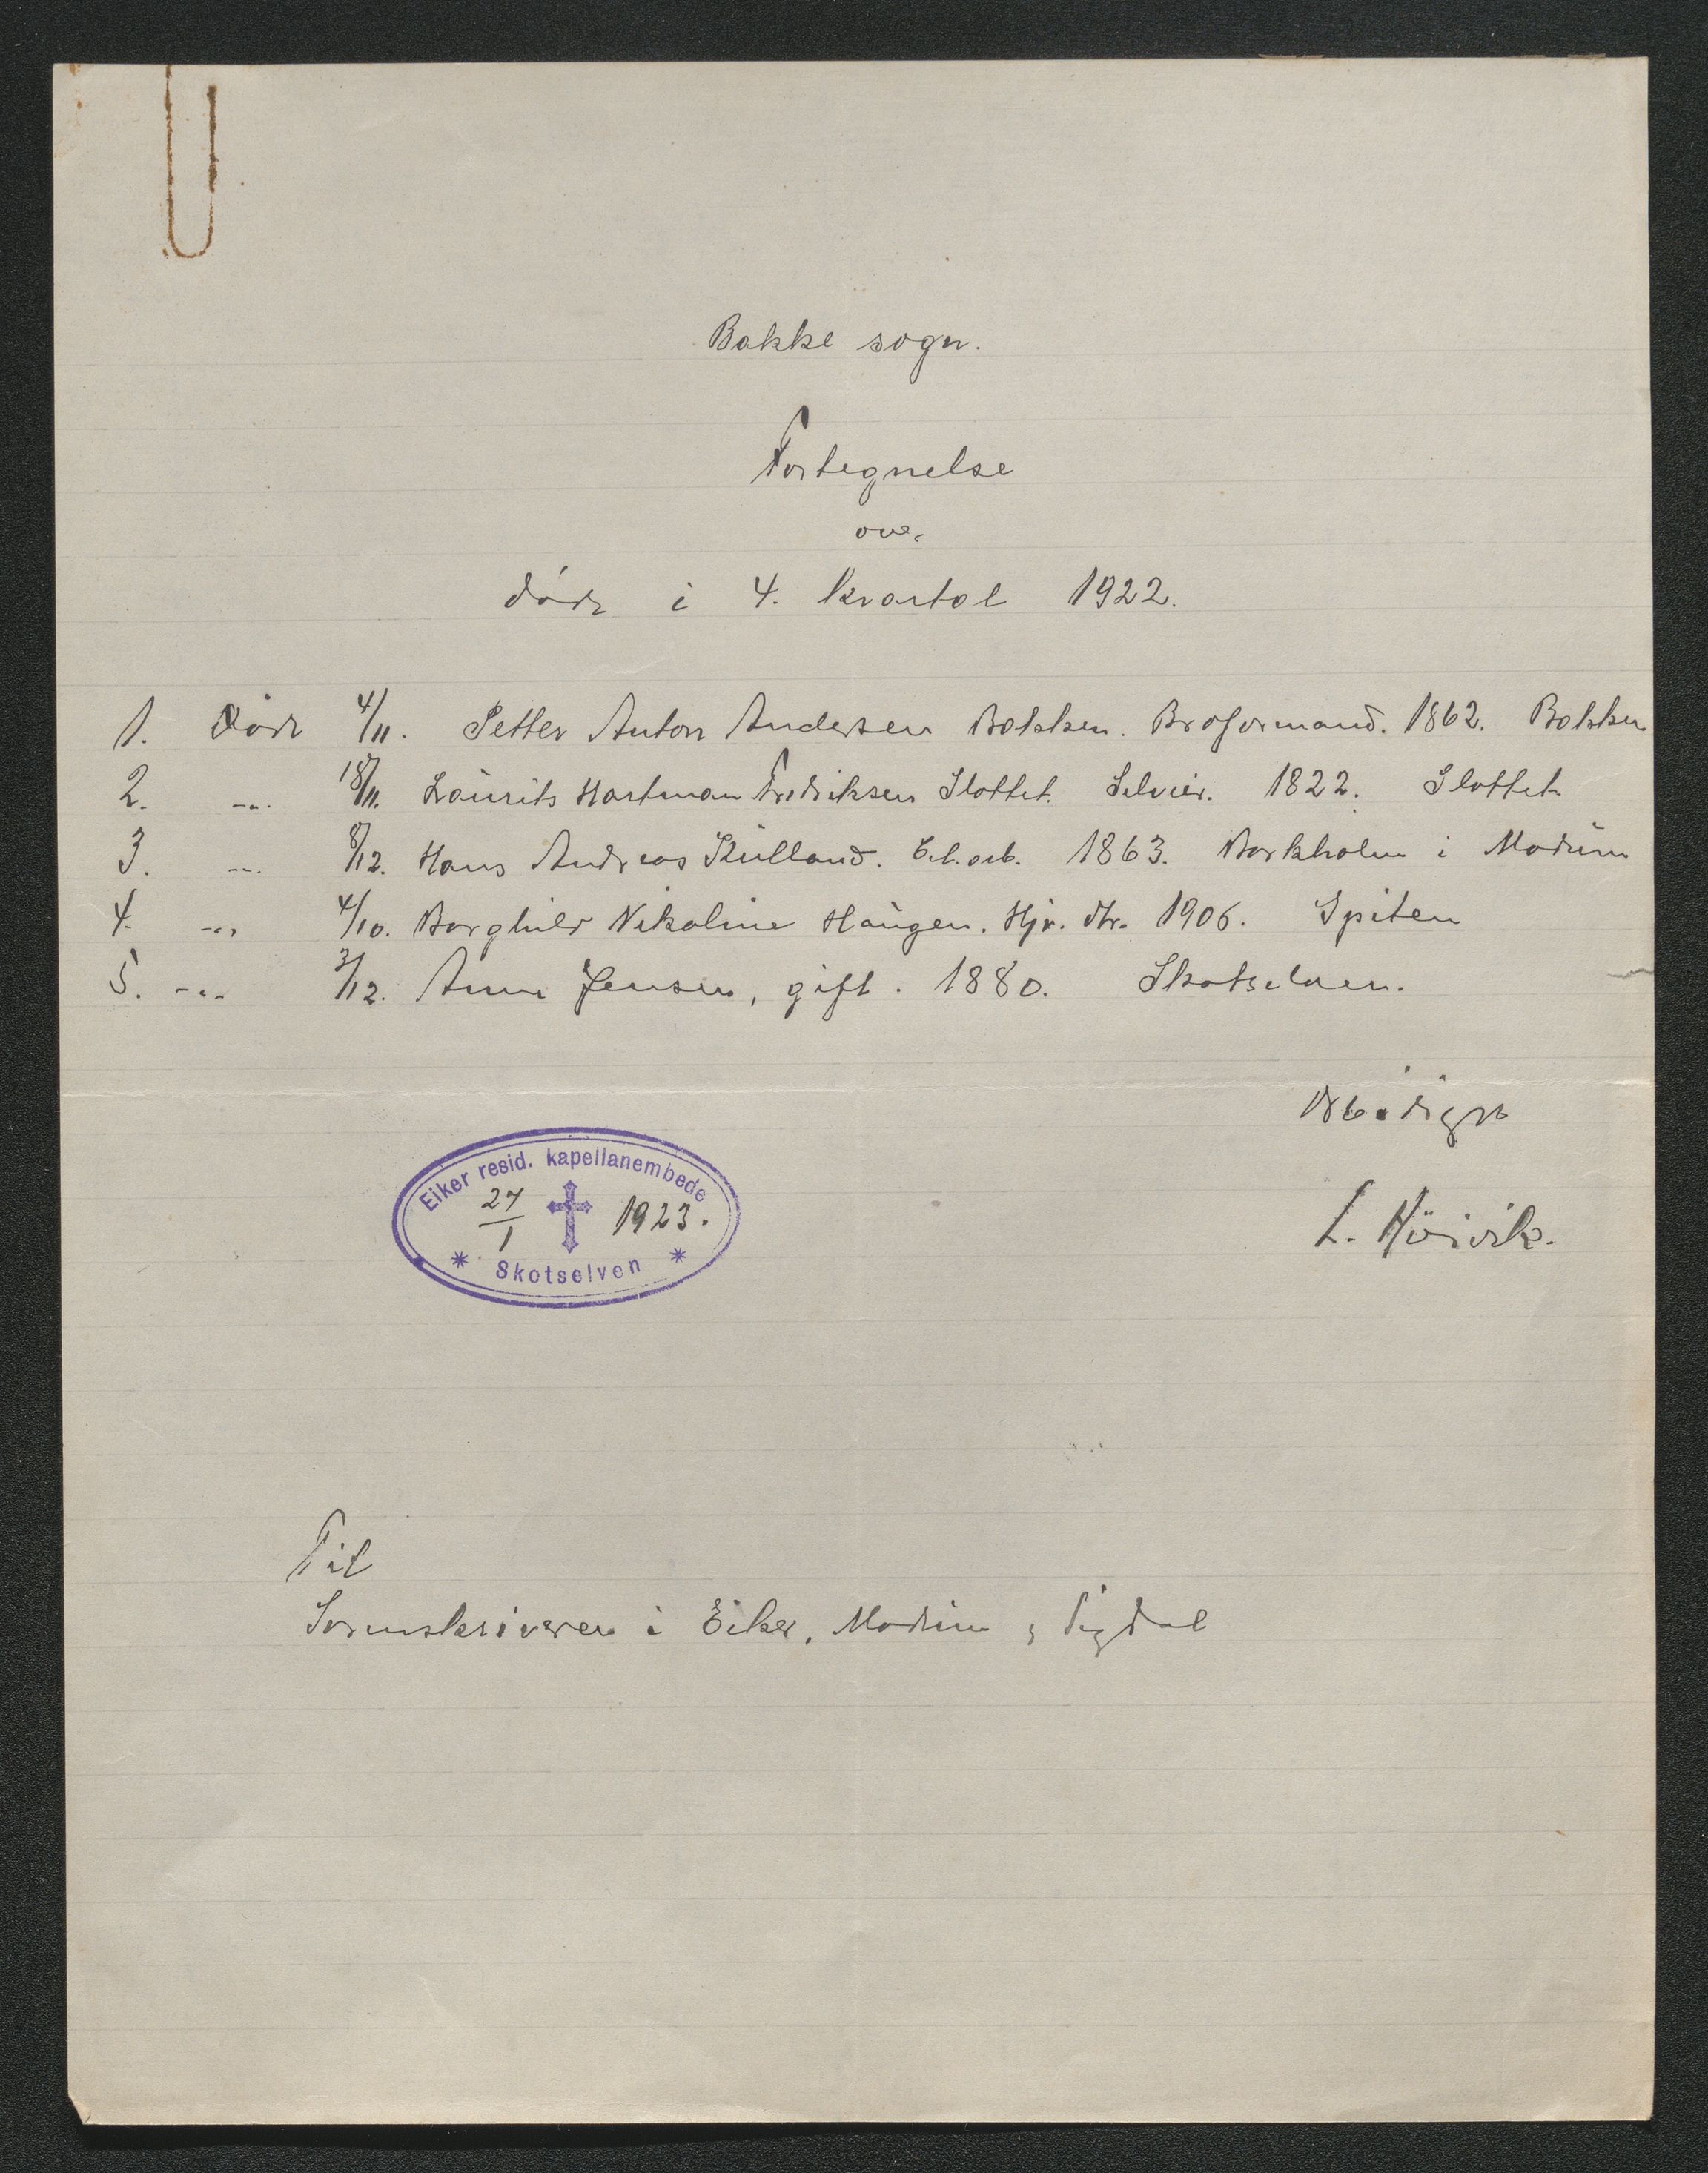 Bakke sogn.
Fortegnelse
over
døde i 4. kvartal 1922.
1. Døde 4/11. Petter Anton Andersen Bakken. Broformand. 1862. Bakken
2. -"- 18/11. Laurits Hartman Fredriksen Slottet. Selveier. 1822. Slottet.
3. -"- 8/12. Hans Andreas Kulland. Erl. arb. 1863. Barkholm i Modum
4. -"- 4/10. Borghild Nikoline Haugen. Hjv. dtr. 1906. Spiten
5. -"- 3/12. Anna Jensen, gift. 1880. Skotselven.
Ærbødigst
L. Høivik.
Eiker resid. kapellanembede
27/1 1923.
* Skotselven *
Til
Sorenskriveren i Eiker, Modum og Sigdal